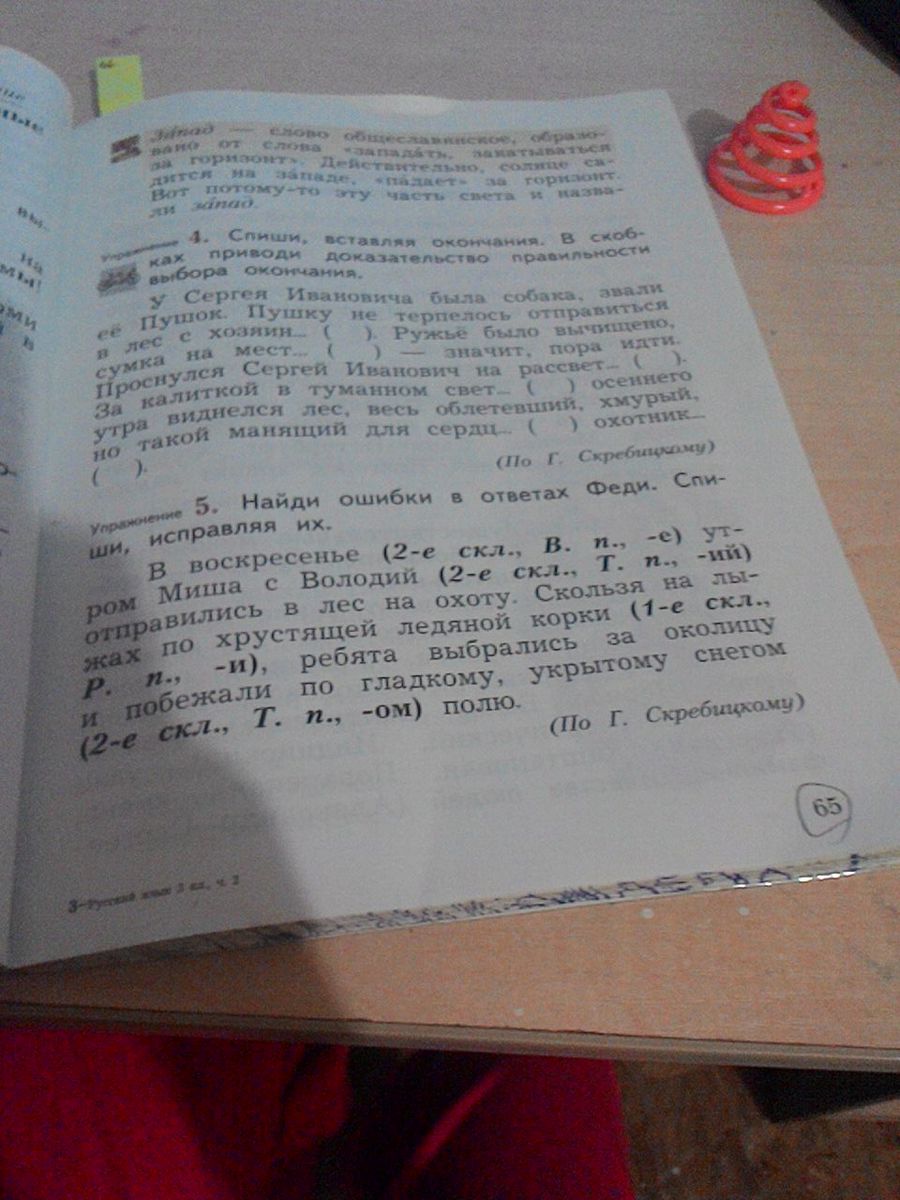 ные
вы-
на
мы!
оми
в
За́пад — слово общеславянское, образо-
вано от слова «запада́ть, закатываться
за горизонт». Действительно, солнце са-
дится на за́паде, «па́дает» за горизонт.
Вот потому-то эту часть света и назва-
ли за́пад.
Упражнение 4. Спиши, вставляя окончания. В скоб-
ках приводи доказательство правильности
выбора окончания.
У Сергея Ивановича была собака, звали
её Пушок. Пушку не терпелось отправиться
в лес с хозяин... ( ). Ружьё было вычищено,
сумка на мест... ( ) — значит, пора идти.
Проснулся Сергей Иванович на рассвет... ( ).
За калиткой в туманном свет... ( ) осеннего
утра виднелся лес, весь облетевший, хмурый,
но такой манящий для сердц... ( ) охотник...
( ).
(По Г. Скребицкому)
Упражнение 5. Найди ошибки в ответах Феди. Спи-
ши, исправляя их.
В воскресенье (2-е скл., В. п., -е) ут-
ром Миша с Володий (2-е скл., Т. п., -ий)
отправились в лес на охоту. Скользя на лы-
жах по хрустящей ледяной корки (1-е скл.,
Р. п., -и), ребята выбрались за околицу
и побежали по гладкому, укрытому снегом
(2-е скл., Т. п., -ом) полю.
(По Г. Скребицкому)
65
3-Русский язык 3 кл., ч. 2